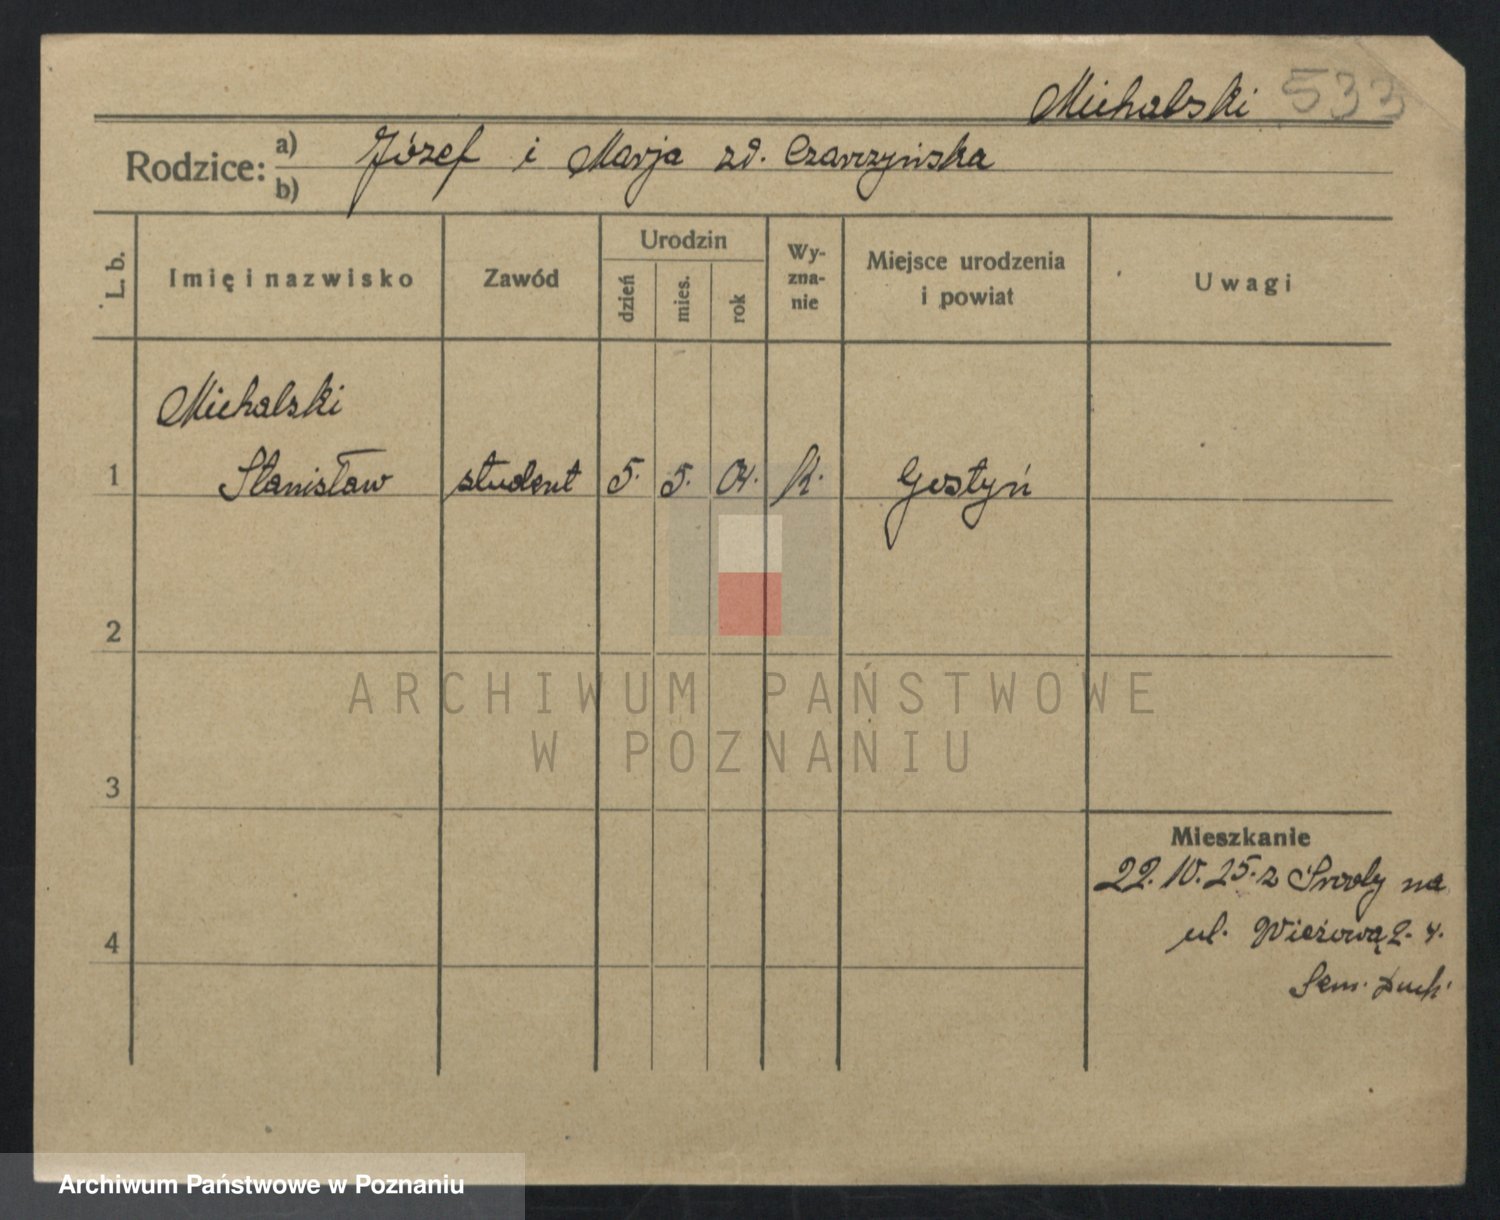 Michalski 533
Rodzice: a) Józef i Marja zd. Czarczyńska
b)
L. b. Imię i nazwisko Zawód Urodzin dzień mies. rok Wyznanie Miejsce urodzenia i powiat Uwagi
Michalski
1 Stanisław student 5. 5. 04. k. Gostyń
2
ARCHIWUM PAŃSTWOWE
W POZNANIU
3
Mieszkanie
22. 10. 25. z Środy na
4 ul. Wieżową 2-4.
Sem. Duch.
Archiwum Państwowe w Poznaniu